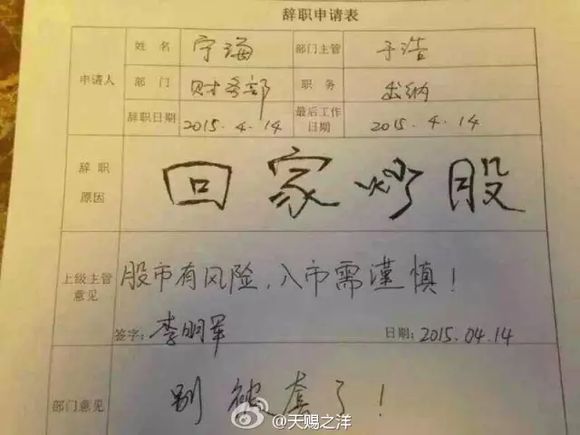 辞职申请表
申请人 姓名 宁海 部门主管 于浩
部门 财务部 职务 出纳
辞职日期 2015.4.14 最后工作日期 2015.4.14
辞职原因 回家炒股
上级主管意见 股市有风险,入市需谨慎!
签字: 李明军 日期: 2015.04.14
部门意见 别被套了!
@天赐之洋